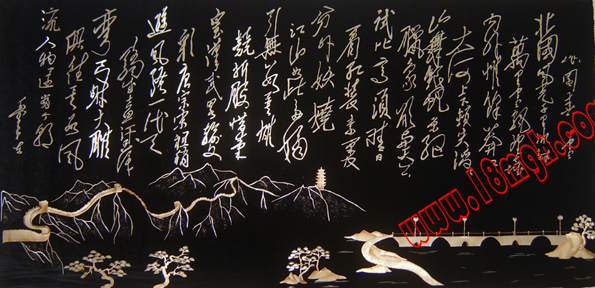 沁园春 雪
北国风光千里冰封
万里雪飘望长城
内外惟余莽莽
大河上下顿失滔滔
山舞银蛇原驰
蜡象欲与天公
试比高须晴日
看红装素裹
分外妖娆
江山如此多娇
引无数英雄
竞折腰惜秦
皇汉武略输文
彩唐宗宋祖稍
逊风骚一代天
骄成吉思汗只识
弯弓射大雕
俱往矣数风
流人物还看今朝
毛泽东
www.18mgh.com